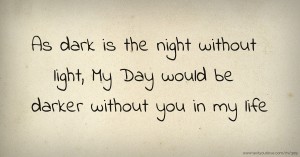 As dark is the night without
light, My Day would be
darker without you in my life